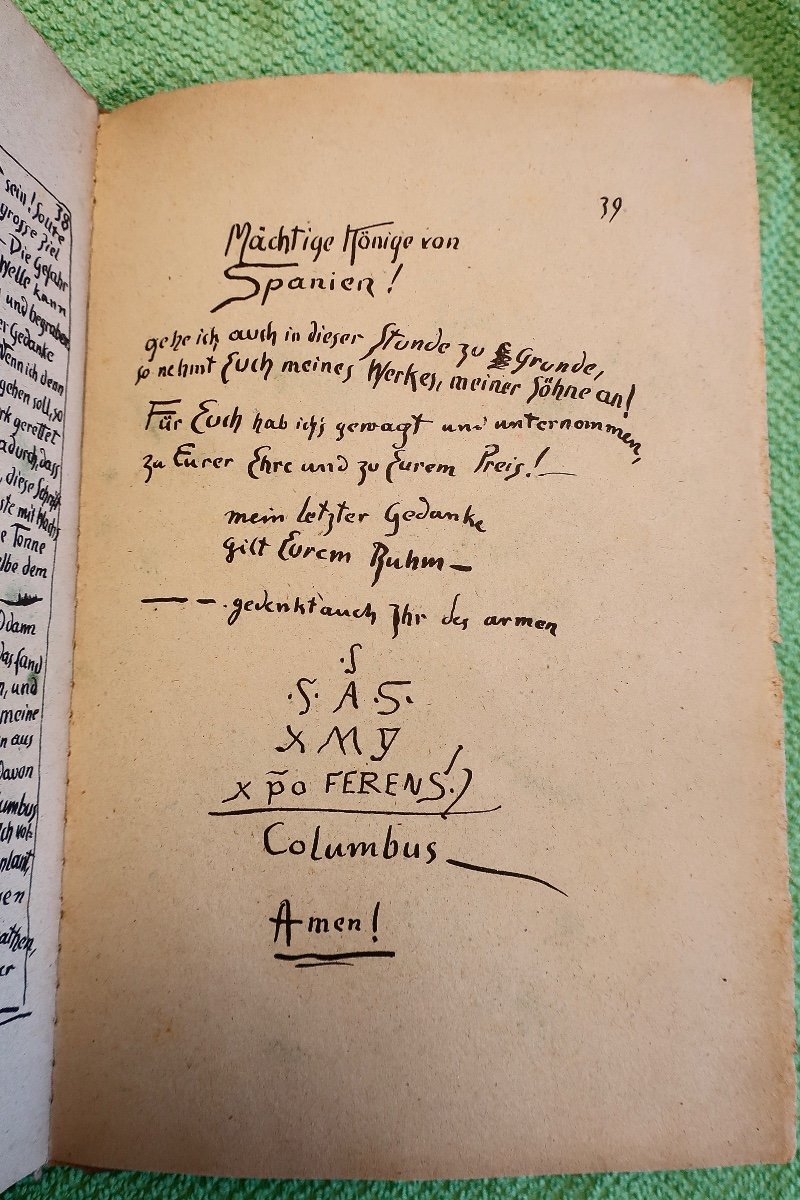 sein! Sollte
38
grosse Ziel
Die Gefahr
Welle kann
und begraben
er Gedanke
Wenn ich denn
gehen soll, so
rk gerettet
adurch, dass
diese Schrift
ste mit Wachs
e Tonne
elbe dem
dann
das fand
n, und
meine
n aus
davon
lumbus
Ich vol-
nlant,
en
athen,
er
39
Mächtige Könige von
Spanien!
gehe ich auch in dieser Stunde zu Grunde,
so nehmt Euch meines Werkes, meiner Söhne an!
Für Euch hab ich's gewagt und unternommen,
zu Eurer Ehre und zu Eurem Preis! —
mein letzter Gedanke
gilt Eurem Ruhm —
— — . gedenkt auch Ihr des armen
.S
.S. A .S.
X M Y
X p̄o FERENS!
Columbus
Amen!